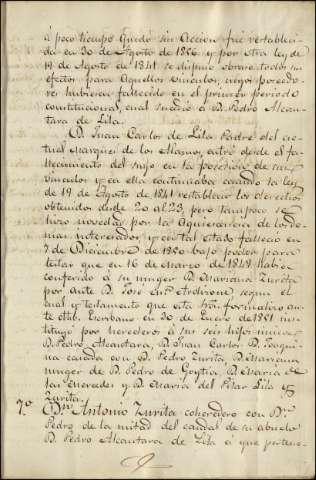 á poco tiempo quedó sin accion fué restableci-
da en 30 de Agosto de 1836 y por otra ley de
19 de Agosto de 1841 se dispuso obraren todos sus
efectos para aquellos vinculos, cuyos poseedo-
res hubieran fallecido en el primer periodo
constitucional, cual sucedió á D. Pedro Alcan-
tara de Lila.
D. Juan Carlos de Lila Padre del ac-
tual Marques de los Alamos, entró desde el fa-
llecimiento del suyo en la posesion de sus
vinculos y en ella continuaba cuando la ley
de 19 de Agosto de 1841 restableció los derechos
obtenidos desde 20 al 23, pero tampoco se
hizo novedad por la aquiescencia de los de-
mas interesados y en tal estado falleció en
7 de Diciembre de 1850 bajo poder para
testar que en 16 de Marzo de 1848 habia
conferido á su muger D. Mariana Zurita
por ante D. José Ardizone, segun el
cual y testamento que esta Sra. formalizó an-
te otro Escribano en 30 de Enero de 1851 ins-
tituyó por herederos á sus seis hijos
D. Pedro Alcantara, D. Juan Carlos, D. Joaqui-
na casada con D. Pedro Zurita, D. Mariana
muger de D. Pedro de Goytia, D. Maria de
las Mercedes y D. Maria del Pilar Lila y
Zurita.
7º Dn. Antonio Zurita coheredero con Dn.
Pedro de la mitad del caudal de su abuelo
D. Pedro Alcantara de Lila á que pertene-